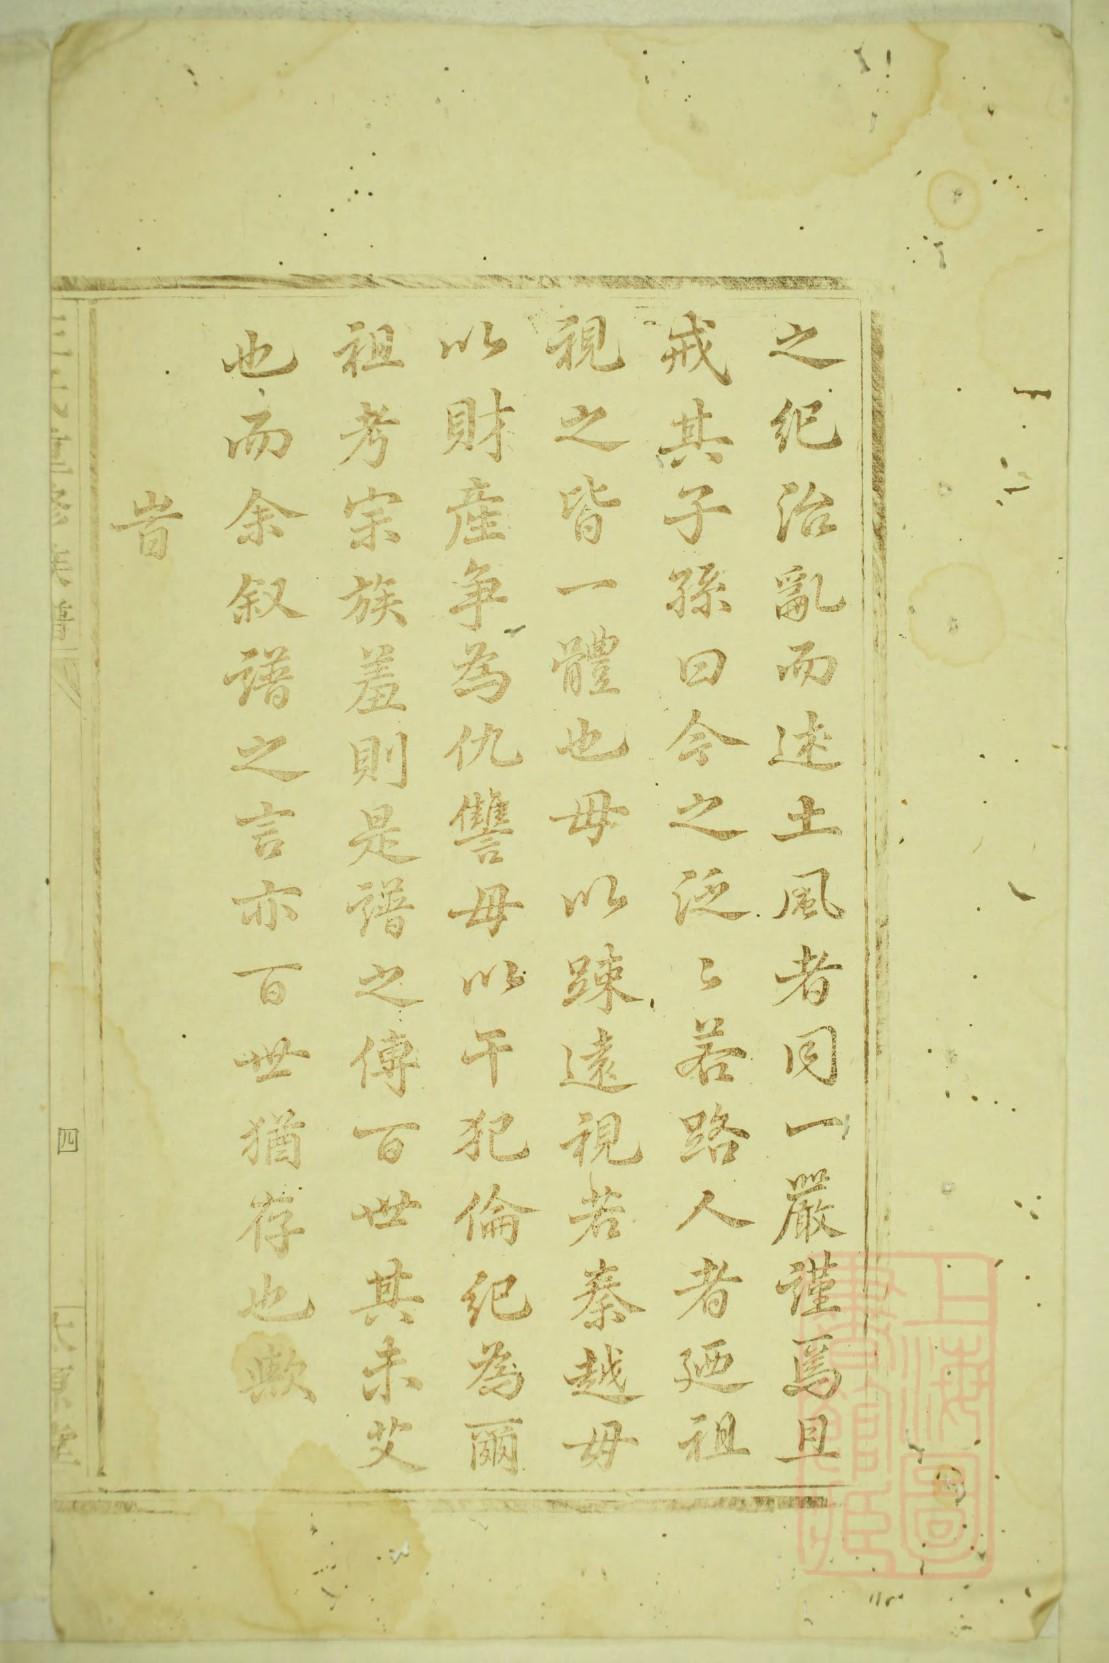 之紀治亂而述土風者同一嚴謹焉且
戒其子孫曰今之泛〻若路人者廼祖
視之皆一體也毋以踈遠視若秦越毋
以財產爭為仇讐毋以干犯倫紀為爾
祖考宗族羞則是譜之傳百世其未艾
也而余叙譜之言亦百世猶存也歟
旹
四
上海圖書館藏